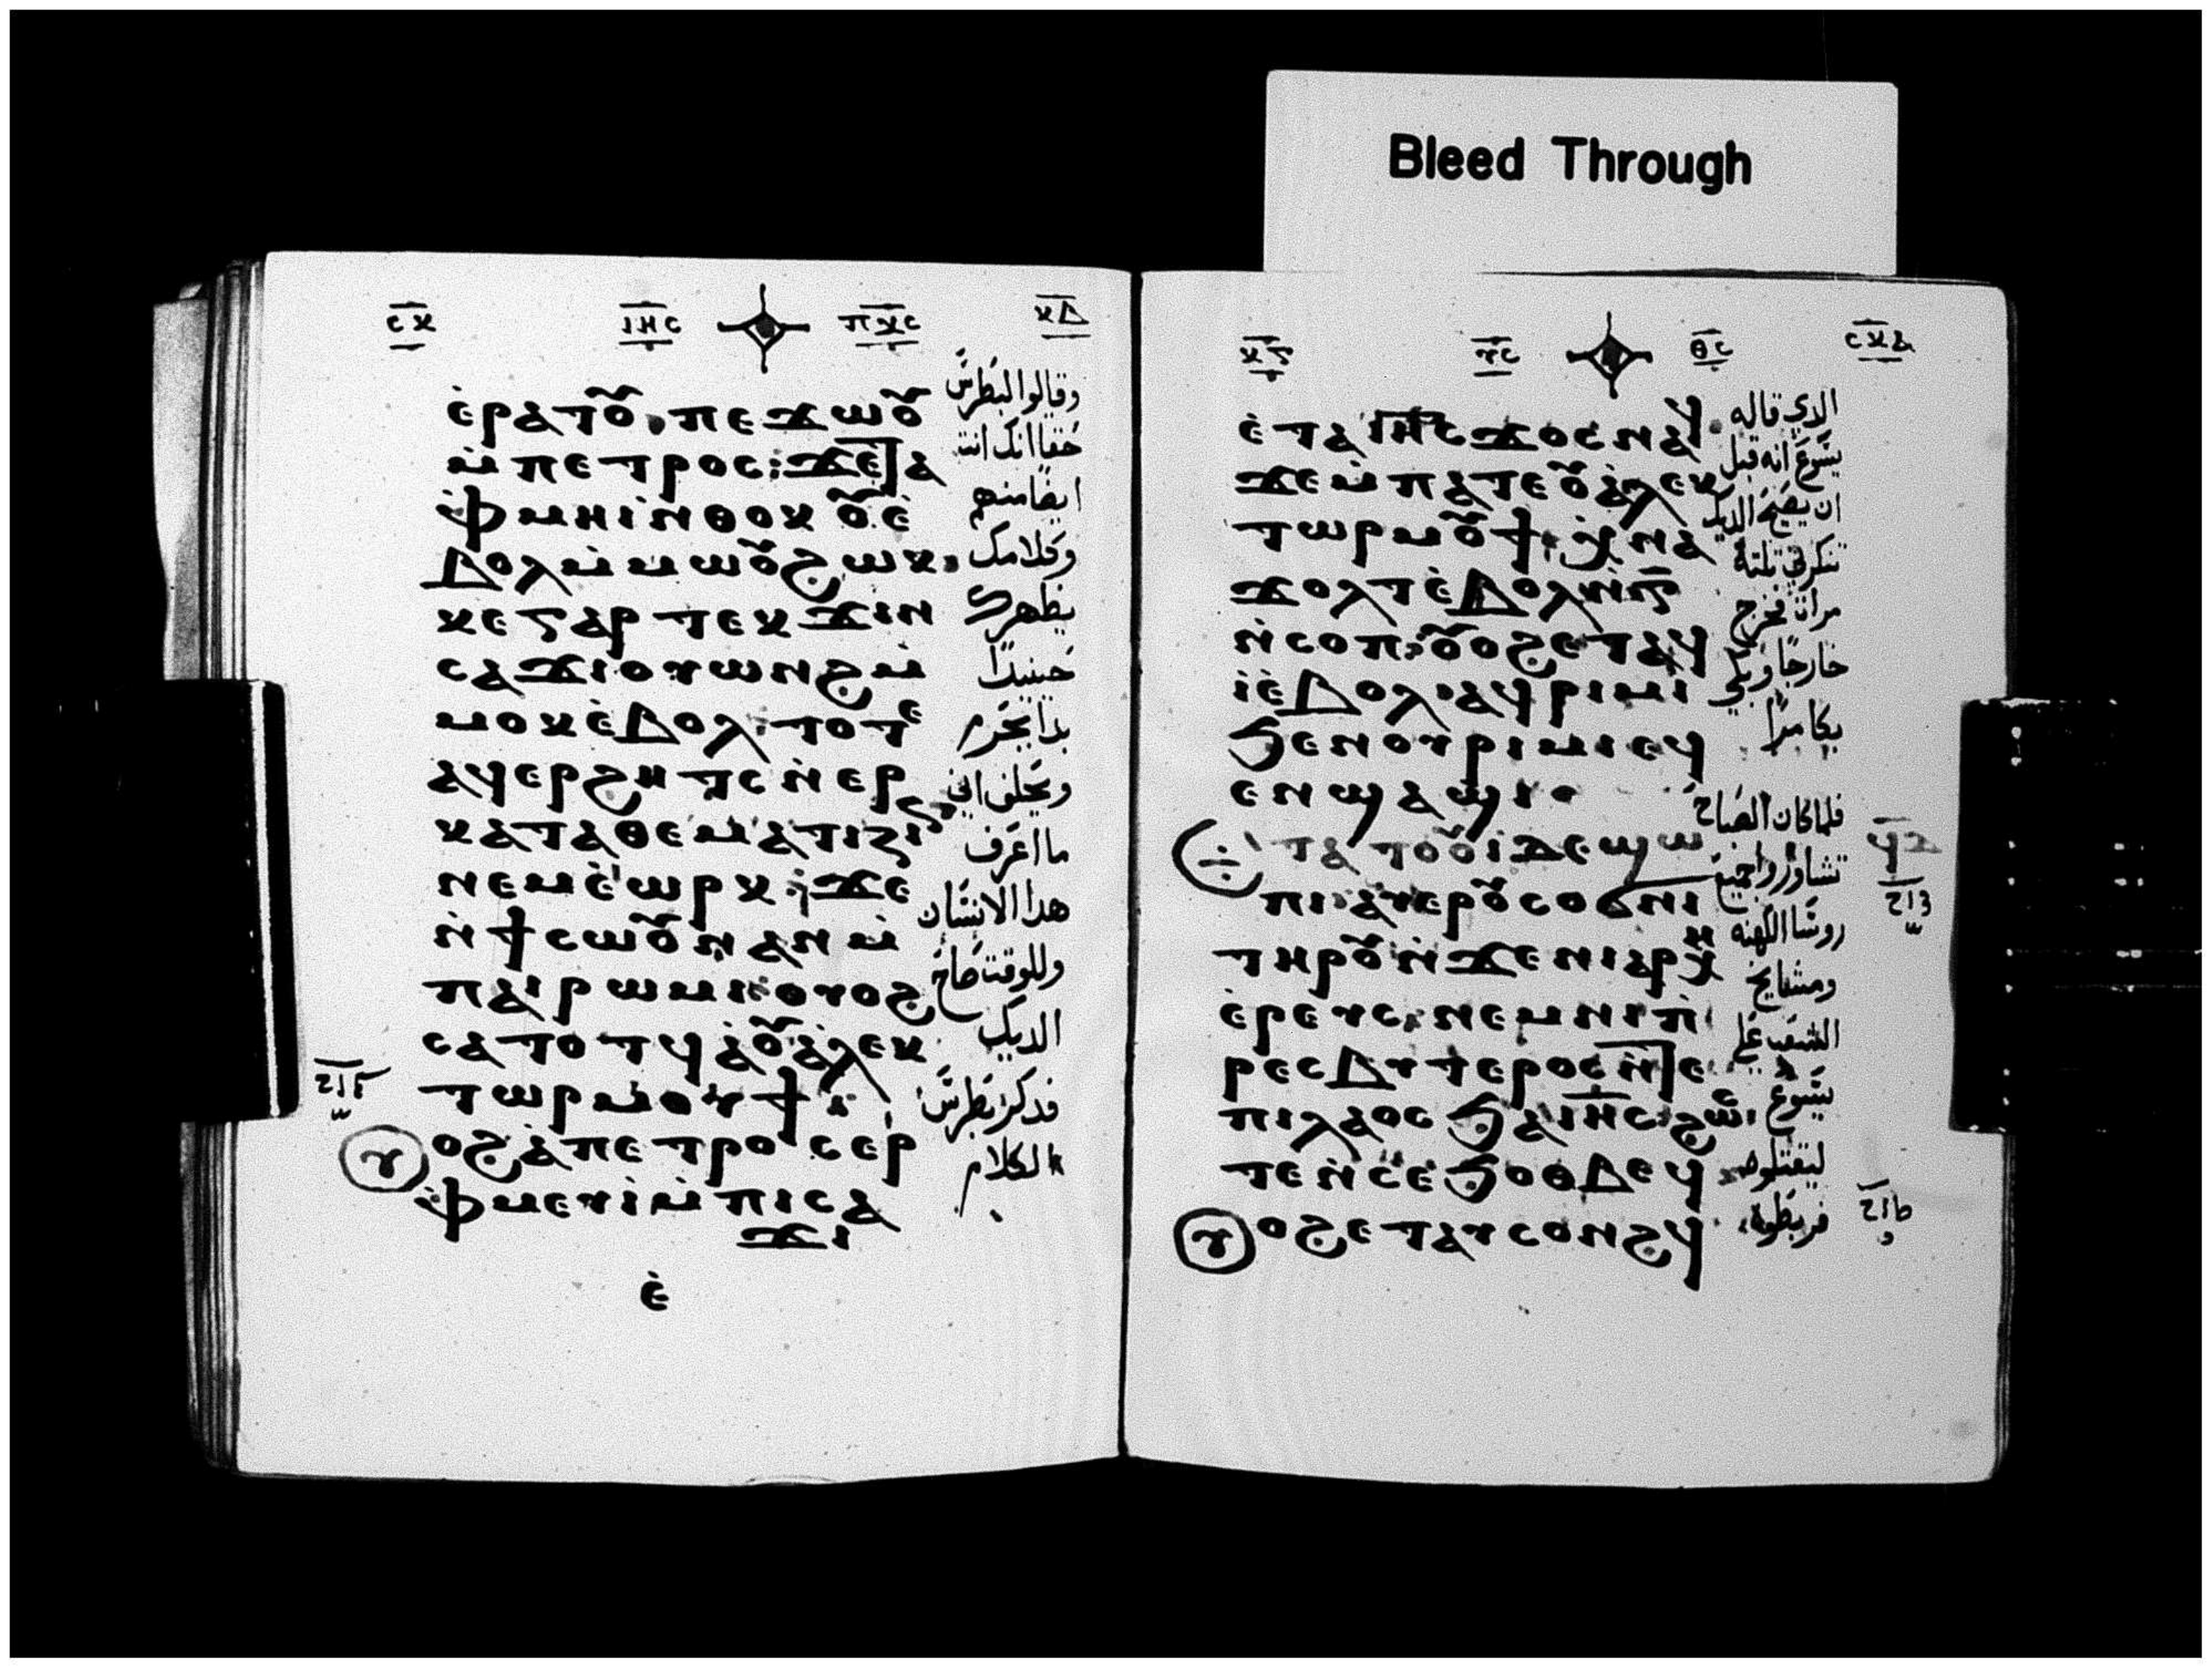 Bleed Through
ⲥⲕ ⲓⲏⲥ ⲡⲭⲥ ⲕⲇ
ⲉ̇ⲣⲁⲧⲟⲩ ⲡⲉϫⲱⲟⲩ
ⲙ̇ⲡⲉⲧⲣⲟⲥ: ϫⲉ
ⲫⲙⲏⲓ ⲛ̇ⲑⲟⲕ ⲟⲩⲉ̇
ⲃⲟⲗ ⲙ̇ⲙⲱⲟⲩ ϩⲱⲕ
ⲕⲉ ⲅⲁⲣ ⲧⲉⲕϫⲓⲛ
ⲥⲁϫⲓ ⲟⲩⲱⲛϩ ⲙ̇
ⲙⲟⲕ ⲉ̇ⲃⲟⲗ ⲧⲟⲧⲉ
ⲁϥⲉⲣϩⲏⲧⲥ ⲛ̇ⲉⲣ
ⲕⲁⲧⲁⲑⲉⲙⲁⲧⲓⲍⲓⲛ
ⲛⲉⲙ ⲉ̇ⲱⲣⲕ ϫⲉ
ⲛ̇ϯⲥⲱⲟⲩⲛ ⲁⲛ ⲙ̇
ⲡⲁⲓⲣⲱⲙⲓ ⲟⲩⲟϩ
ⲥⲁⲧⲟⲧϥ ⲁ̇ ⲟⲩⲁ̇ⲗⲉⲕ
ⲧⲱⲣ ⲙⲟⲩϯ
ⲩⲟϩ ⲁ̇ ⲡⲉⲧⲣⲟⲥ ⲉⲣ
ⲫⲙⲉⲩⲓ̇ ⲙ̇ⲡⲓⲥⲁ
ϫⲓ
ⲉ̇
وقالوا لبطرس
حقا انك انت
ايضا منهم
وكلامك
يظهرك
حينيدا
بدا يحرم
ويحلف اني
ما اعرف
هدا الانسان
وللوقت صاح
الديك
فدكر بطرس
الكلام
ⲑⲥ
ⲉ̇ⲧⲁ ⲓⲏⲥ ϫⲟⲥ ⲛⲁϥ
ϫⲉ ⲙ̇ⲡⲁⲧⲉ ⲟⲩⲁ̇ⲗⲉⲕ
ⲧⲱⲣ ⲙⲟⲩϯ ⲭ̇ⲛⲁ
ϫⲟⲗⲧ ⲉ̇ⲃⲟⲗ ⲛ̇ⲅ̅
ⲛ̇ⲥⲟⲡ: ⲟⲩⲟϩ ⲉⲧⲁϥ
ⲓ̇ ⲉ̇ⲃⲟⲗ ⲁϥⲣⲓⲙⲓ
ϧⲉⲛ ⲟⲩⲣⲓⲙⲓ ⲉϥ
ⲉⲛϣⲁϣⲓ
ⲧⲁ ⲧⲟⲟⲩⲓ ⲇⲉ ϣⲱ
ⲡⲓ ⲁⲩⲉⲣⲟⲩⲥⲟϭⲛⲓ
ⲧⲏⲣⲟⲩ ⲛ̇ϫⲉ ⲛⲓⲁⲣⲭⲏ
ⲉ̇ⲣⲉⲩⲥ ⲛⲉⲙ ⲛⲓⲡ̇
ⲣⲉⲥⲃⲩⲧⲉⲣⲟⲥ ⲛ̇ⲧⲉ
ⲡⲓⲗⲁⲟⲥ ϧⲁ ⲓⲏⲥ ϩⲱⲥ
ⲧⲉ ⲛ̇ⲥⲉϧⲟⲑⲃⲉϥ
ⲩⲟϩ ⲉⲧⲁⲩⲥⲟⲛϩϥ
الدي قاله
يسوع انه قبل
ان يصيح الديك
تنكرني تلته
مرات فخرج
خارجا وبكي
بكا مرا
فلما كان الصباح
تشاوروا جميع
روسا الكهنه
ومشايخ
الشعب علي
يسوع
ليقتلوه
فربطوه